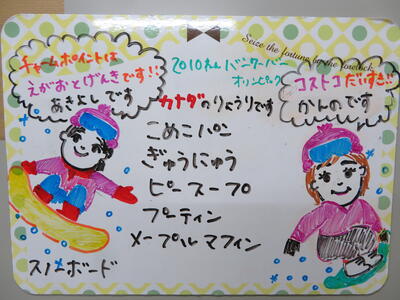 Seize the fortune by the forelock.
チャームポイントは
えがおとげんきです!!
あきよしです
2010ねん バンクーバー
オリンピック
コストコだいすき!!
かんのです
カナダのりょうりです
こめこパン
ぎゅうにゅう
ピースープ
プーティン
メープルマフィン
スノーボード